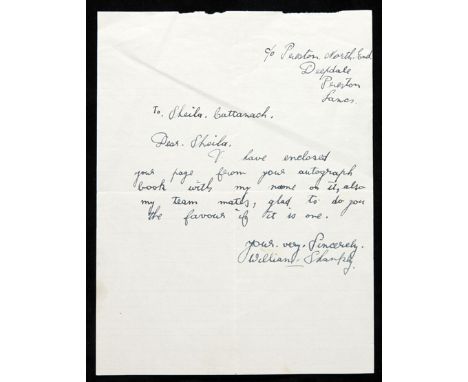 c/o Preston. North. End
Deepdale
Preston
Lancs.
To. Sheila. Cattanach.
Dear. Sheila.
I have enclosed
your page from your autograph
book with my name on it, also
my team mates, glad to do you
the favour if it is one.
yours. very. Sincerely.
William. Shankly.